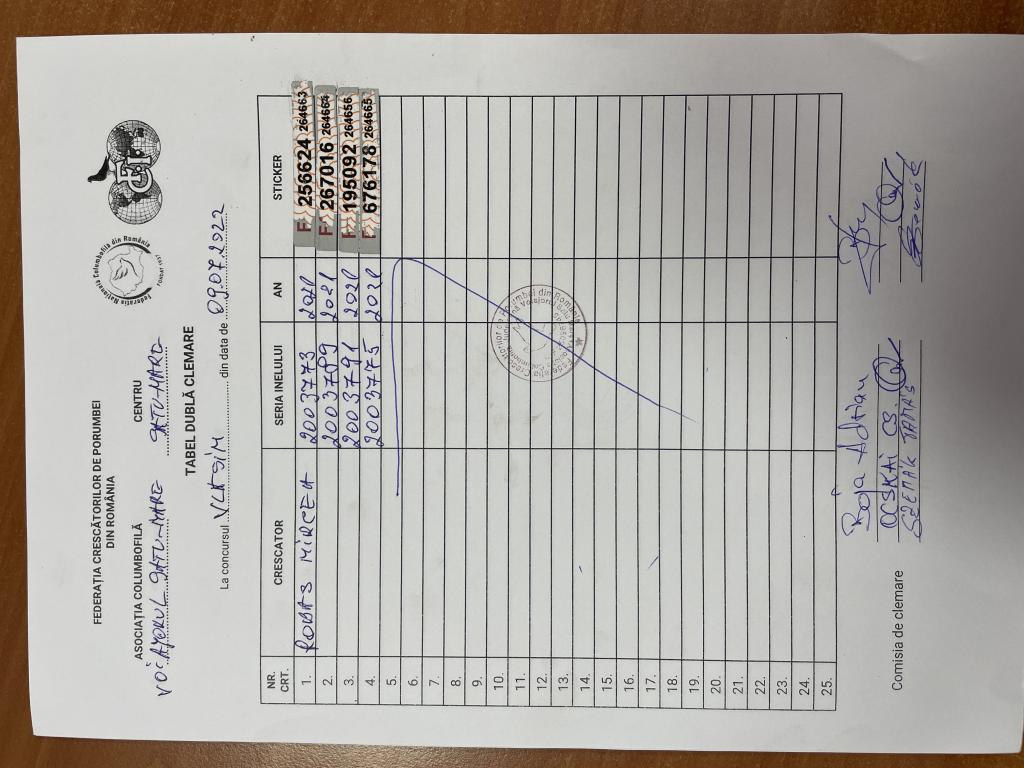 FEDERAȚIA CRESCĂTORILOR DE PORUMBEI
DIN ROMÂNIA
Federația Națională Columbofilă din România
ASOCIAȚIA COLUMBOFILĂ CENTRU
VOIAJORUL SATU-MARE SATU-MARE
TABEL DUBLĂ CLEMARE
La concursul VLASIM din data de 09.07.2022
NR. CRT. CRESCATOR SERIA INELULUI AN STICKER
1. ROBAS MIRCEA 2003773 2020 F 256624 264663
2. 2003789 2021 F 267016 264664
3. 2003791 2020 F 195092 264656
4. 2003775 2020 F 676178 264665
5.
6.
7.
8.
9.
10.
11.
12.
13.
14.
15.
16.
17.
18.
19.
20.
21.
22.
23.
24.
25.
Adrian
Comisia de clemare OCSKAI CS
TAMÁS